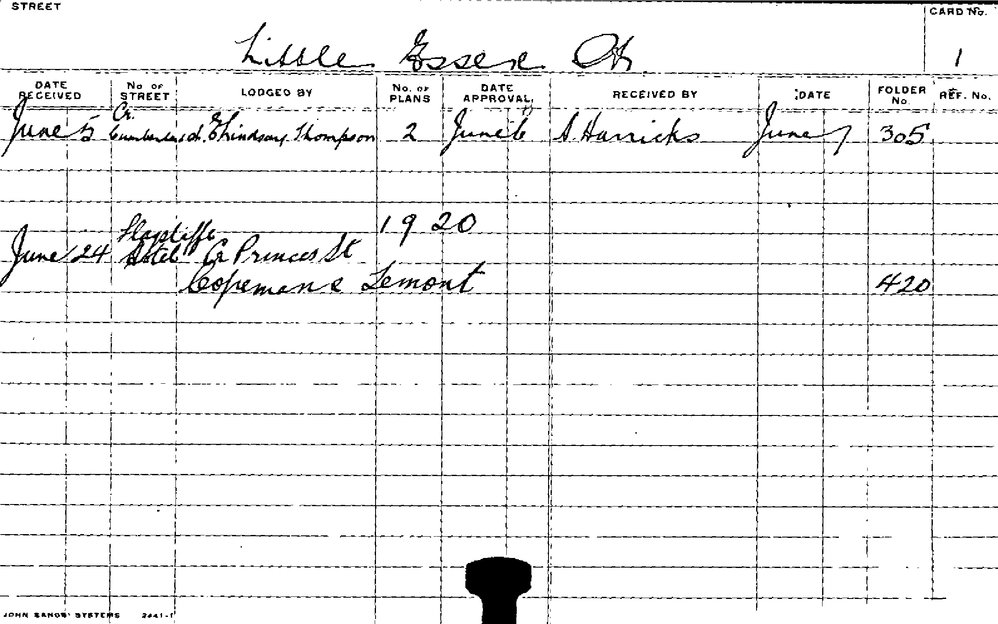 STREET
CARD No.
Little Essex St.
1
DATE RECEIVED No OF STREET LODGED BY No. OF PLANS DATE APPROVAL RECEIVED BY DATE FOLDER No. REF. No.
Cr.
June 5 Cumberland. Lindsay Thompson 2 June 6 A. Harricks June 7 305
1920
June 24 Hotel Cr Princes St
Copeman & Lemont 420
JOHN SANDS' SYSTEMS 2441-1